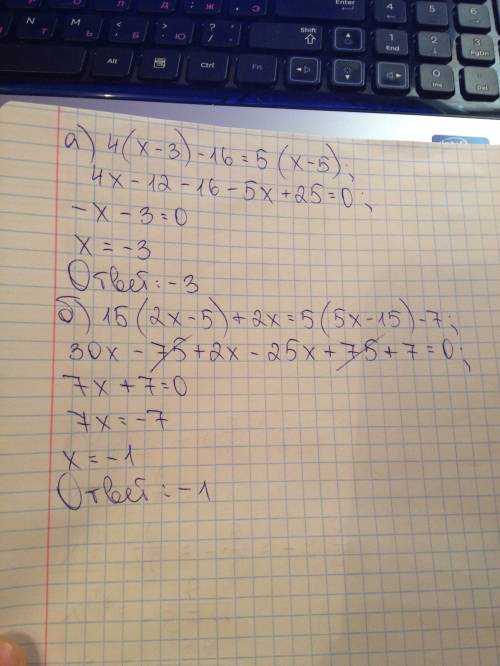 Enter
4
5
6
Shift
1
End
2
3
PgDn
Alt
Ctrl
Fn
0
Ins
Del
а) 4(x-3)-16=5(x-5);
4x-12-16-5x+25=0;
-x-3=0
x=-3
Ответ:-3
б) 15(2x-5)+2x=5(5x-15)-7;
30x-75+2x-25x+75+7=0;
7x+7=0
7x=-7
x=-1
Ответ:-1